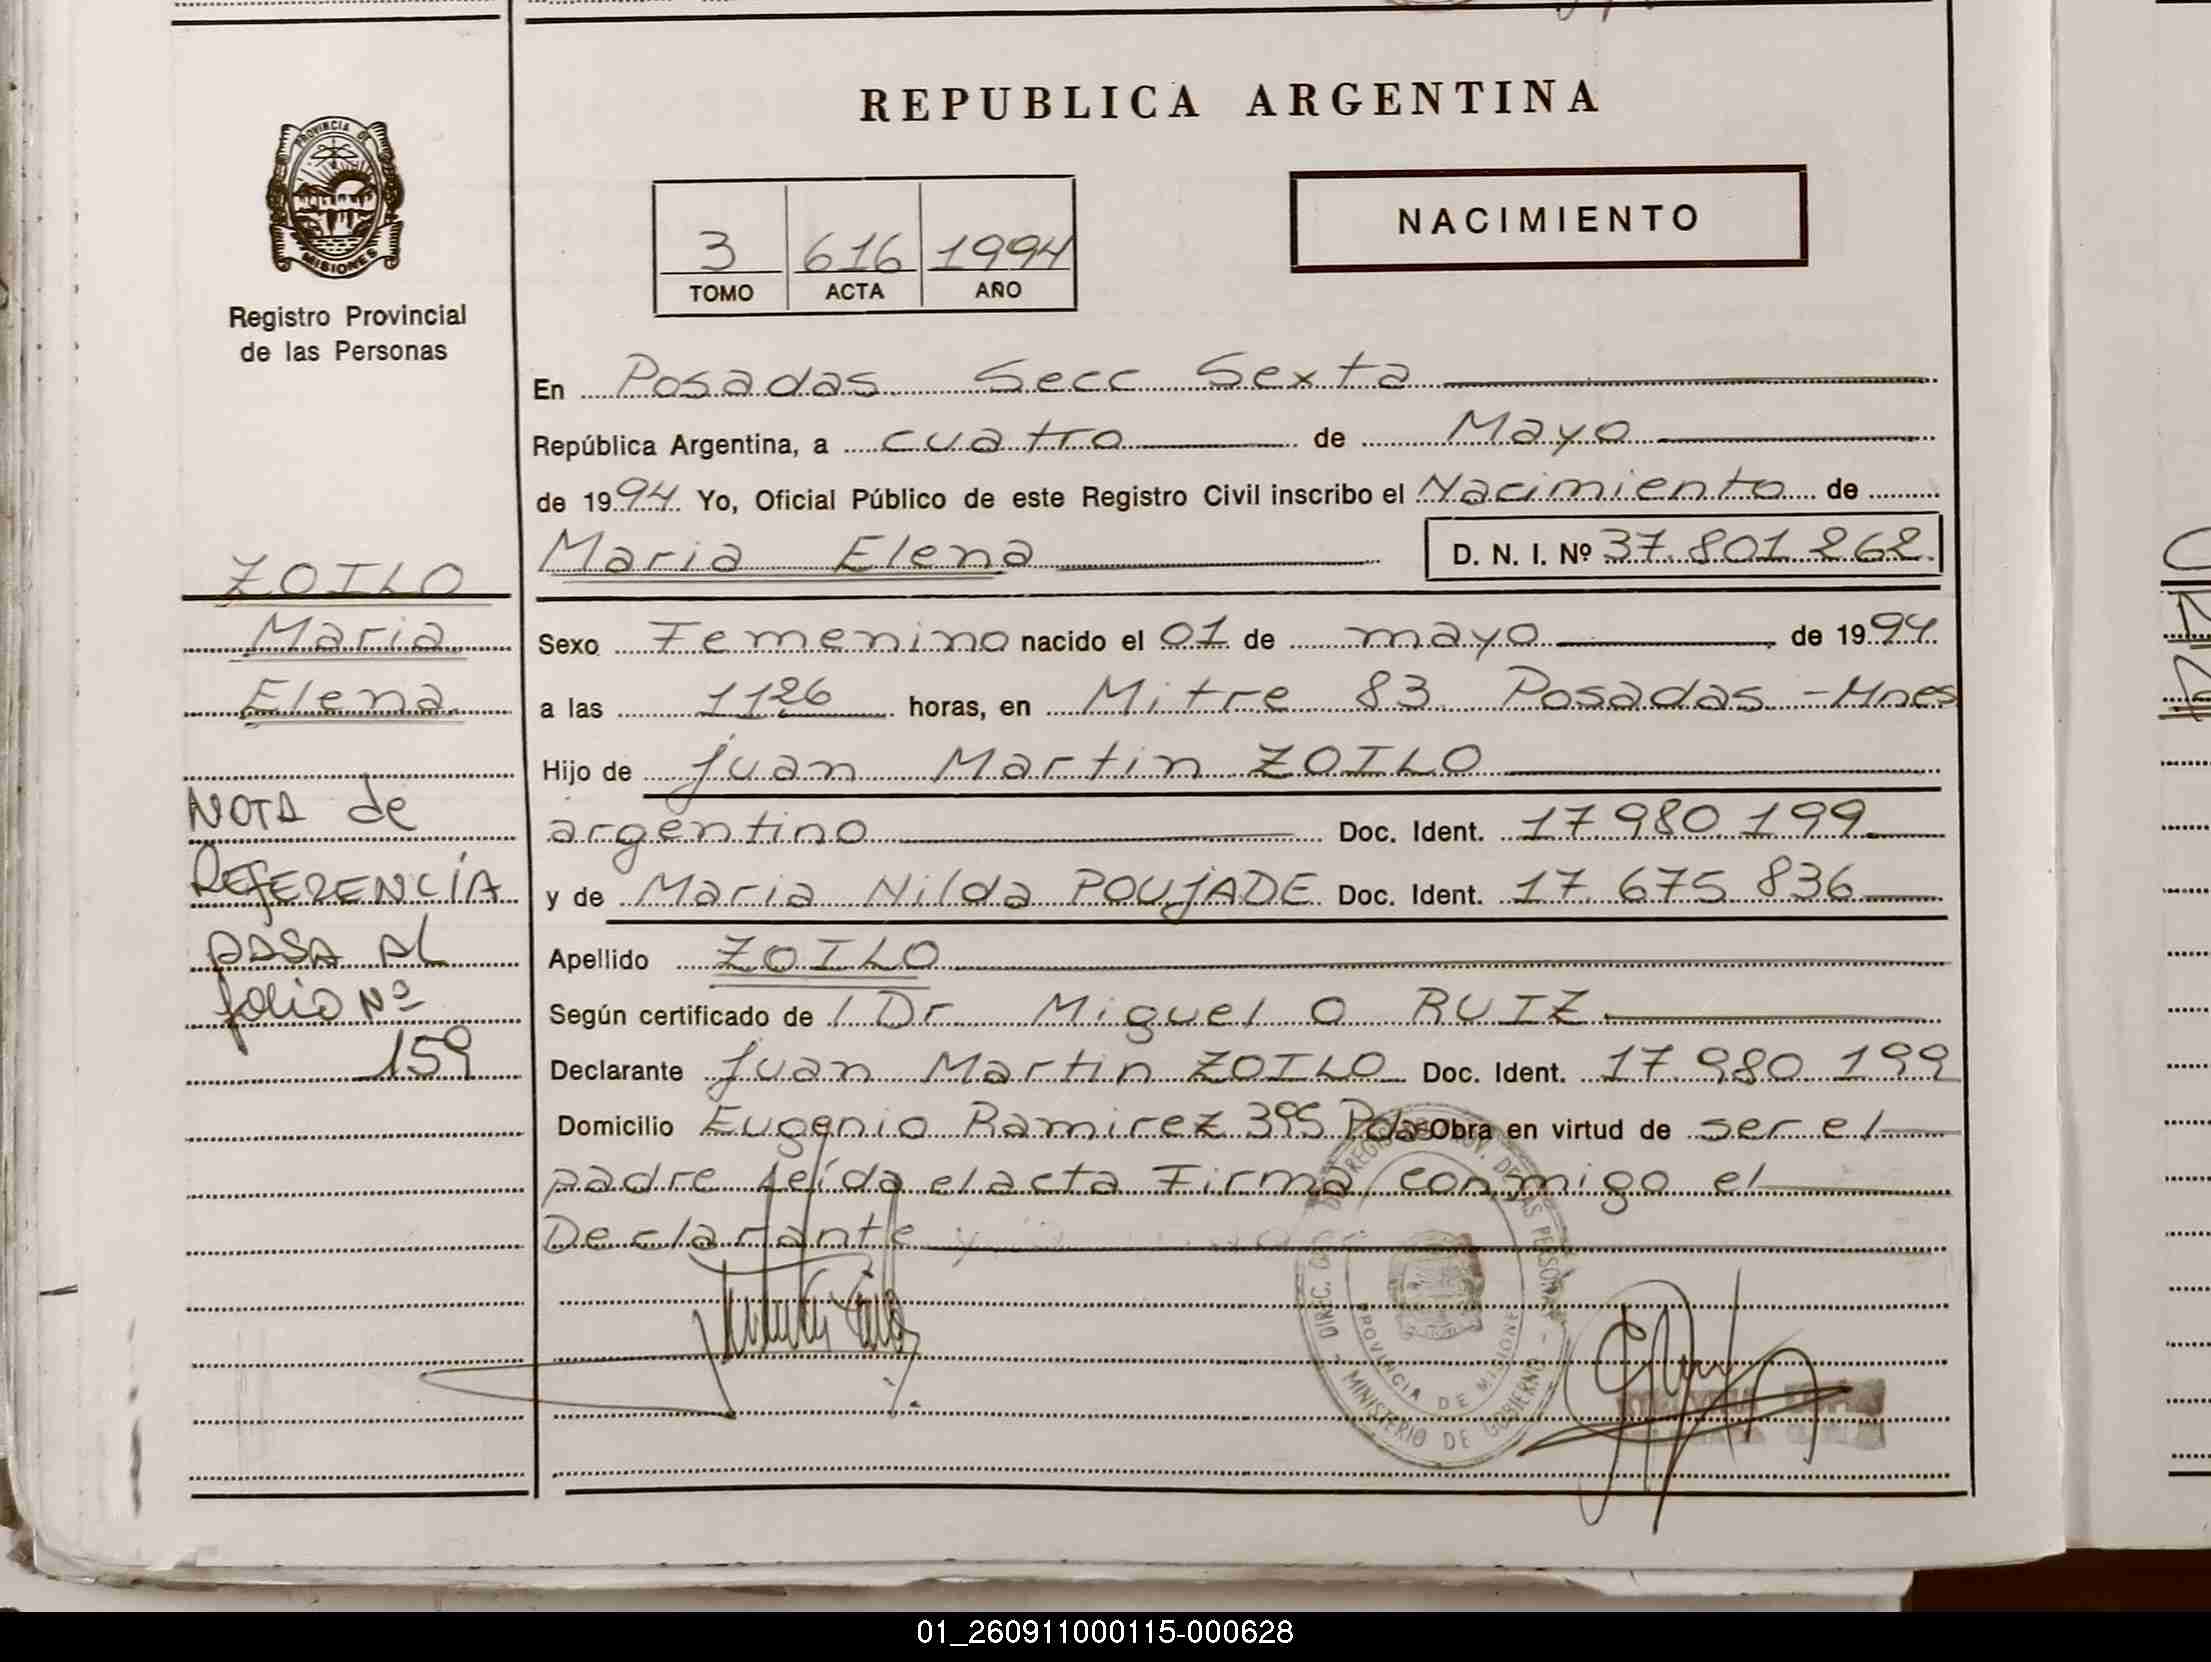 REPUBLICA ARGENTINA
PROVINCIA DE
MISIONES
Registro Provincial
de las Personas
3 616 1994
TOMO ACTA AÑO
NACIMIENTO
En Posadas Secc Sexta
República Argentina, a cuatro de Mayo
de 1994 Yo, Oficial Público de este Registro Civil inscribo el Nacimiento de
Maria Elena D. N. I. Nº 37.801.262.
Sexo Femenino nacido el 01 de mayo de 1994
a las 1126 horas, en Mitre 83 Posadas - Mnes
Hijo de Juan Martin ZOILO
argentino Doc. Ident. 17.980.199.
y de Maria Nilda POUJADE Doc. Ident. 17.675.836
Apellido ZOILO
Según certificado de l Dr Miguel O RUIZ
Declarante Juan Martin ZOILO Doc. Ident. 17.980.199
Domicilio Eugenio Ramirez 395 Pdas Obra en virtud de ser el
padre Leída el acta Firma conmigo el
Declarante
ZOILO
Maria
Elena
NOTA de
REFERENCIA
PASA AL
folio Nº
159
PROVINCIA DE MISIONES
MINISTERIO DE GOBIERNO
01_260911000115-000628